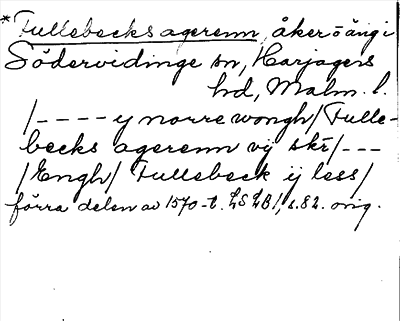 *Fullebecks agerenn, åker o äng i
Södervidinge sn, Harjagers
hd, Malm. l.
/---- y norre wongh/ Fulle-
becks agerenn vij skr/---
/Engh/ Fullebeck ij less/
förra delen av 1570-t. LSLB!, s. 82. orig.